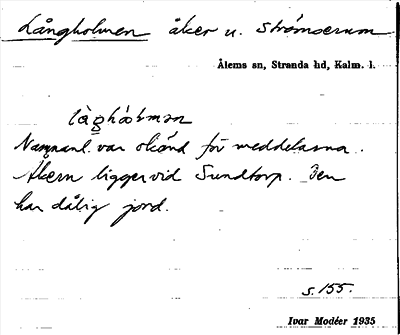 Långholmen åker u. Strömserum
Ålems sn, Stranda hd, Kalm. l.
Namnanl. var okänd för meddelarna.
Åkern ligger vid Sundtorp. Den
har dålig jord.
s. 155.
Ivar Modéer 1935